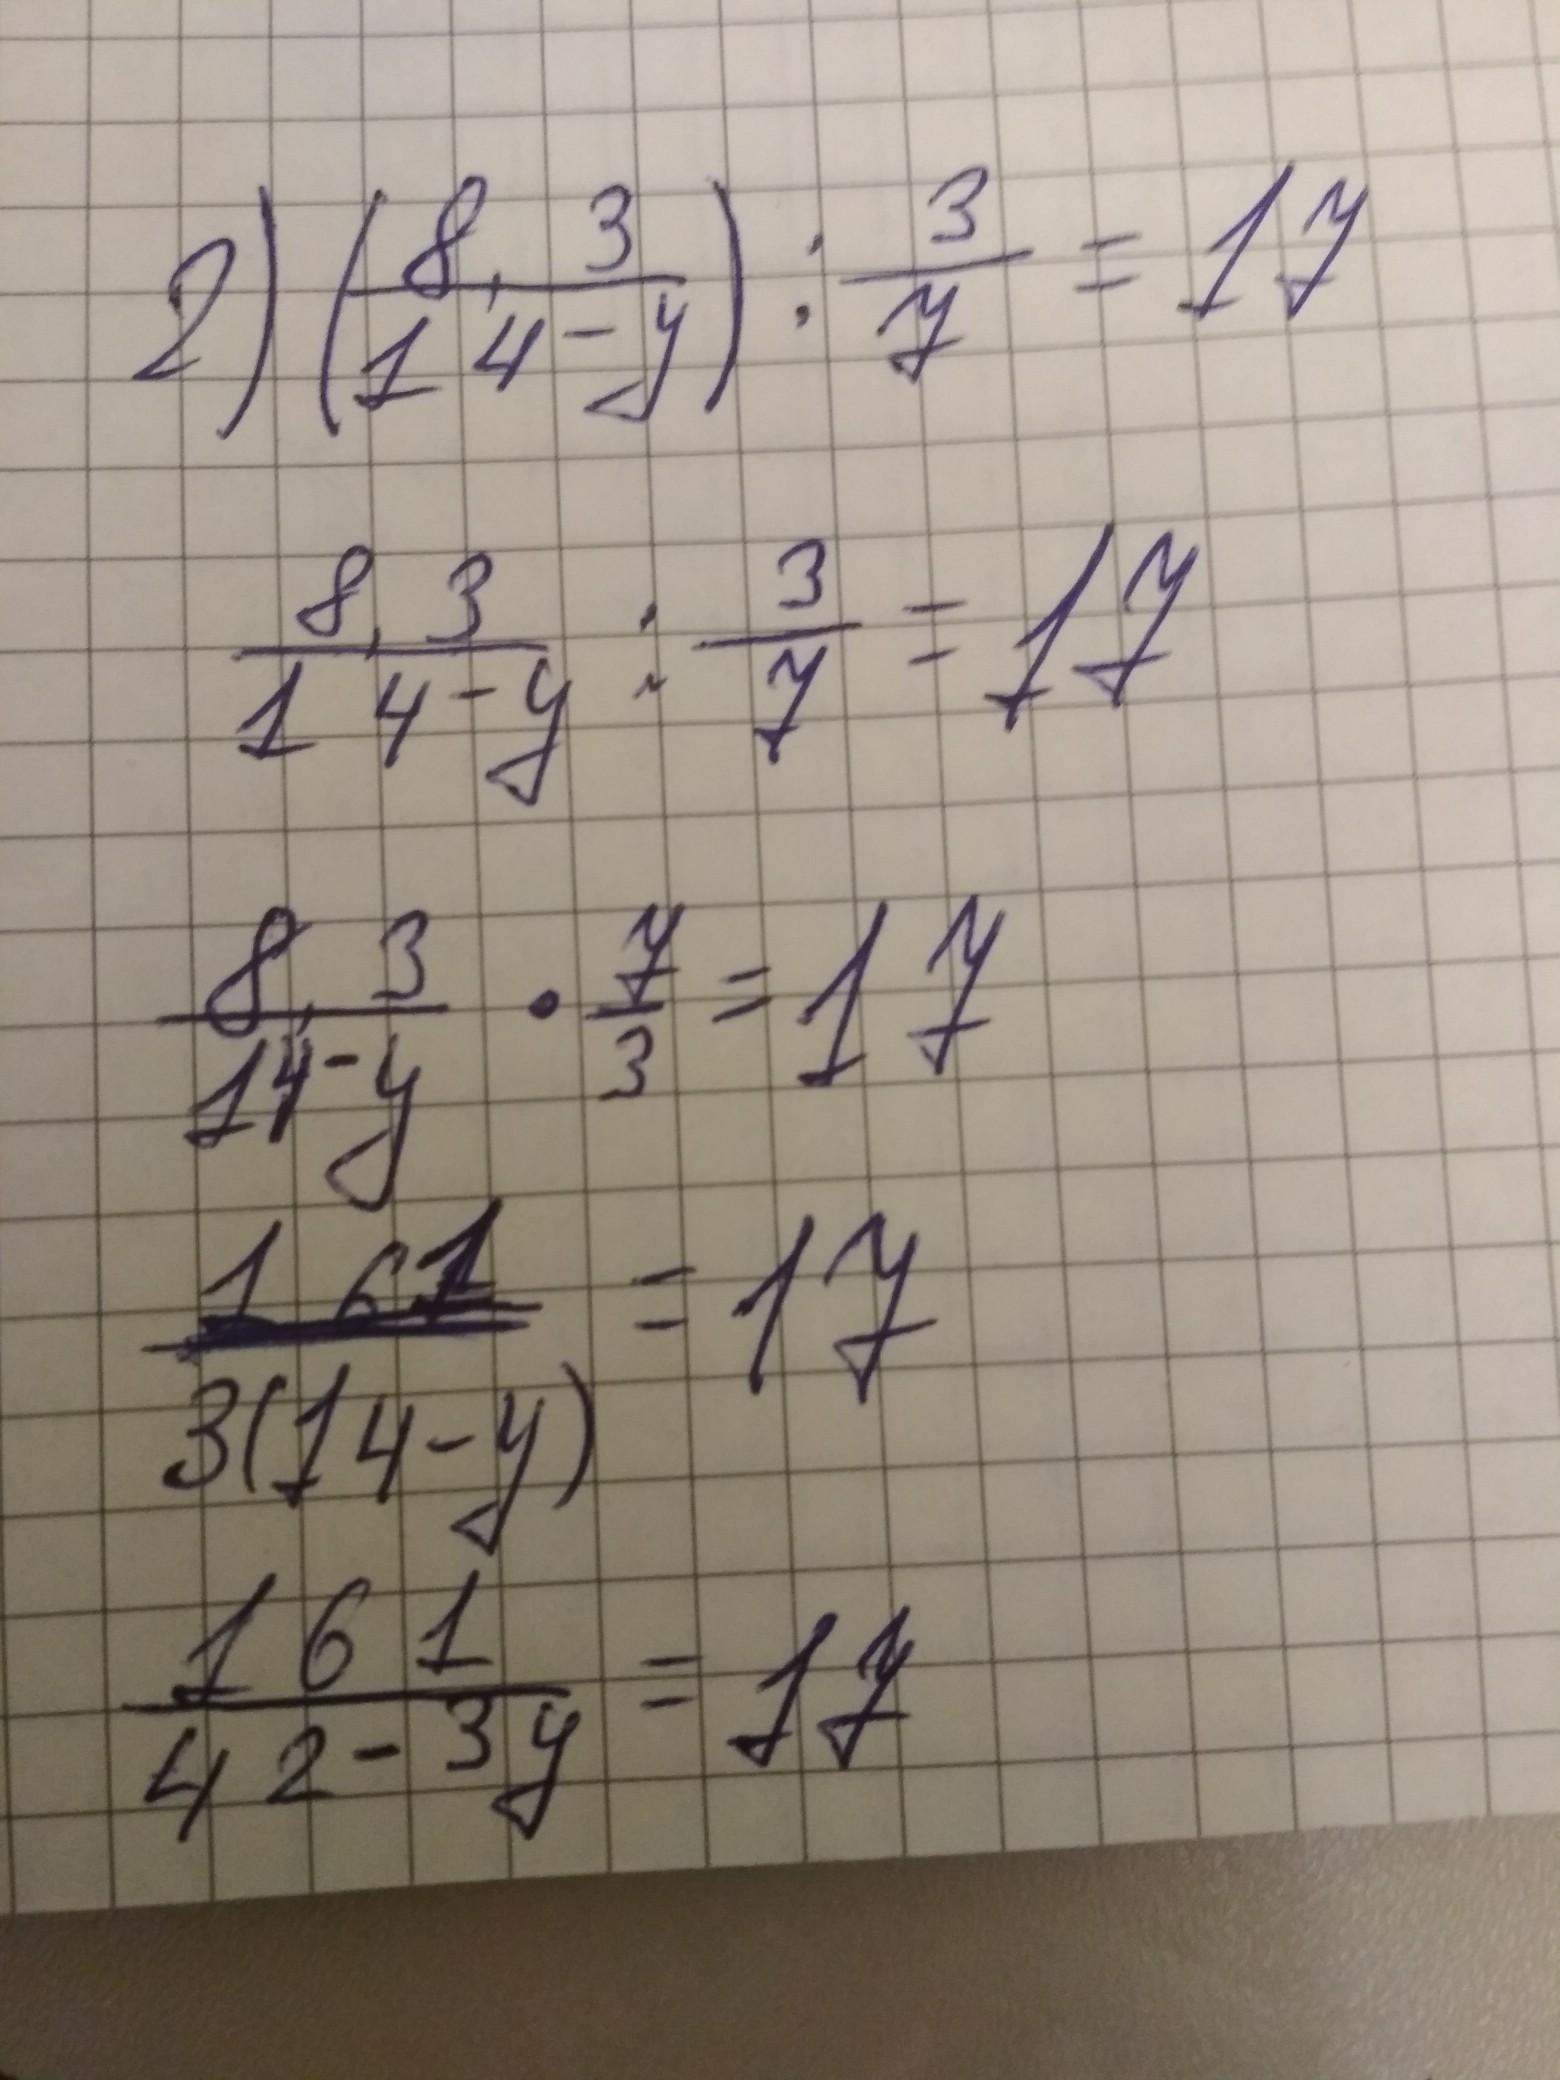 2) (8,3/14-y) : 3/7 = 17
8,3/14-y : 3/7 = 17
8,3/14-y • 7/3 = 17
161/3(14-y) = 17
161/42-3y = 17